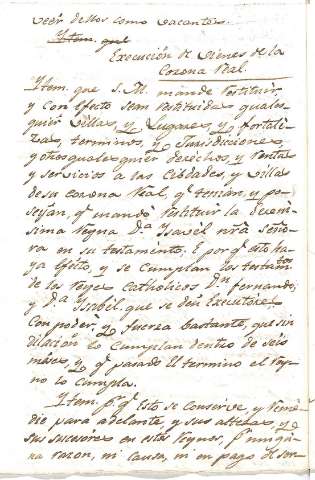 veer dellos como vacantes.
Ytem. que
Execución de vienes de la
Corona Real.
Ytem. que S. M. mande restituir,
y con efecto sean restituidas quales-
quier villas, y Lugares, y fortali-
zas, terminos, y Jurisdicciones
y otros qualesquier derechos, y Rentas
y servicios a las Cibdades, y villas
de su corona Real, q.e tenian, y po-
seyan, q.e mandó restituir la Serenis-
sima Reyna D.a Ysavel nrã Seño-
ra en su testamento. E por q.e esto ha-
ya efeto, y se cumplan los testam.tos
de los Reyes Catholicos D.n fernando,
y D.a Isabel. que se den Executores
con poder, y fuerza bastante, que sin
dilacion lo cumplan dentro de seis
meses, y q.e pasado el termino el Rey-
no lo cumpla.
Ytem. p.r q.e Esto se conserve, y reme-
die para adelante, y sus altezas, y
sus sucesores en estos Reynos, p.r ningu-
na razon, ni causa, ni en pago de ser-